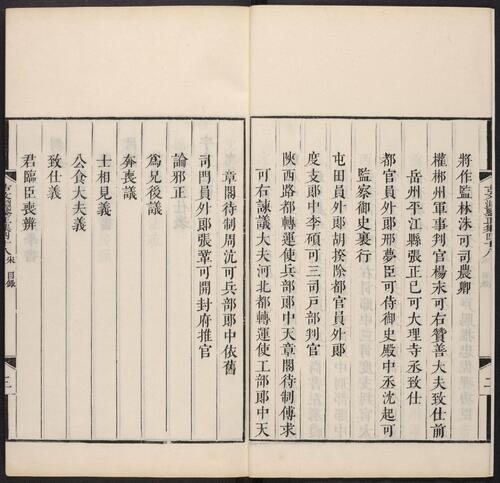 將作監林洙可司農卿
權郴州軍事判官楊宋可右贊善大夫致仕前
岳州平江縣張正己可大理寺丞致仕
都官員外郎邢夢臣可侍御史殿中丞沈起可
監察御史裏行
屯田員外郎胡揆除都官員外郎
度支郎中李碩可三司戸部判官
陝西路都轉運使兵部郎中天章閣待制傅求
可右諫議大夫河北都轉運使工部郎中天
章閣待制周沈可兵部郎中依舊
司門員外郎張鞏可開封府推官
論邪正
為兄後議
奔喪議
士相見義
公食大夫義
致仕義
君臨臣喪辨